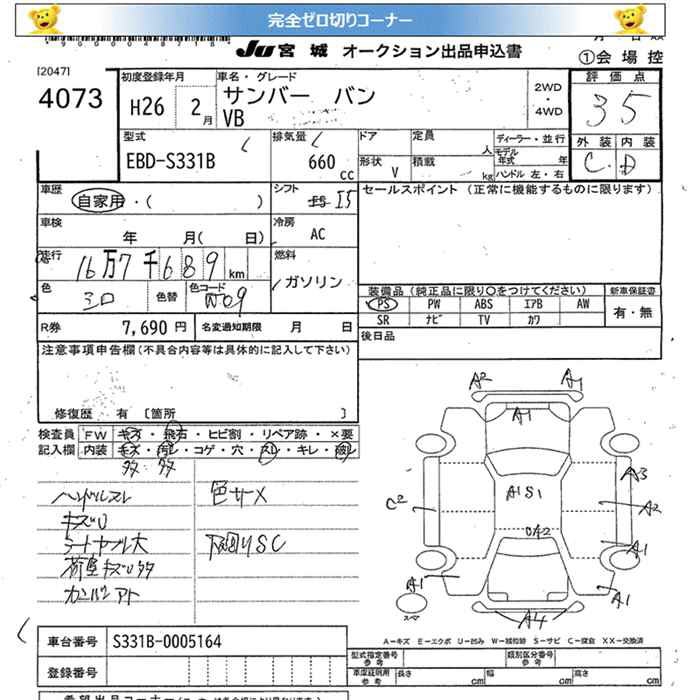 完全ゼロ切りコーナー
JU 宮城 オークション出品申込書
①会場控
[2047]
4073
初度登録年月
H26 2月
車名・グレード
サンバー バン
VB
2WD
・
4WD
評価点
35
型式
EBD-S331B
排気量
660 cc
ドア
定員
人
ディーラー・並行
形状
V
積載
kg
モデル年式 年
ハンドル 左・右
外装 内装
C D
車歴
自家用・( )
シフト
I5
セールスポイント (正常に機能するものに限ります)
車検
年 月( 日)
冷房
AC
走行
16万7千689 km
燃料
ガソリン
色
シロ
色替
色コード
W09
装備品 (純正品に限り○をつけてください)
新車保証書
PS PW ABS エアB AW
SR ナビ TV カワ
有・無
R券 7,690円
名変通知期限 月 日
後日品
注意事項申告欄 (不具合内容等は具体的に記入して下さい)
修復歴 有 〔箇所 〕
検査員 FW キズ・飛石・ヒビ割・リペア跡・×要
記入欄 内装 キズ・汚レ・コゲ・穴・スレ・キレ・破レ
多 多
ハンドルスレ
色サメ
キズU
シートヤブレ大
下回りSC
荷室キズU多
カンバンアト
A2 A1
A1
A1S1
A2
C2
A3
A2
A1
A1
A1
A4
スペア
A-キズ E-エクボ U-凹み W-補修跡 S-サビ C-腐食 XX-交換済
車台番号 S331B-0005164
登録番号
型式指定番号 参考
類別区分番号 参考
車庫証明 参考 長さ cm 幅 cm 高さ cm